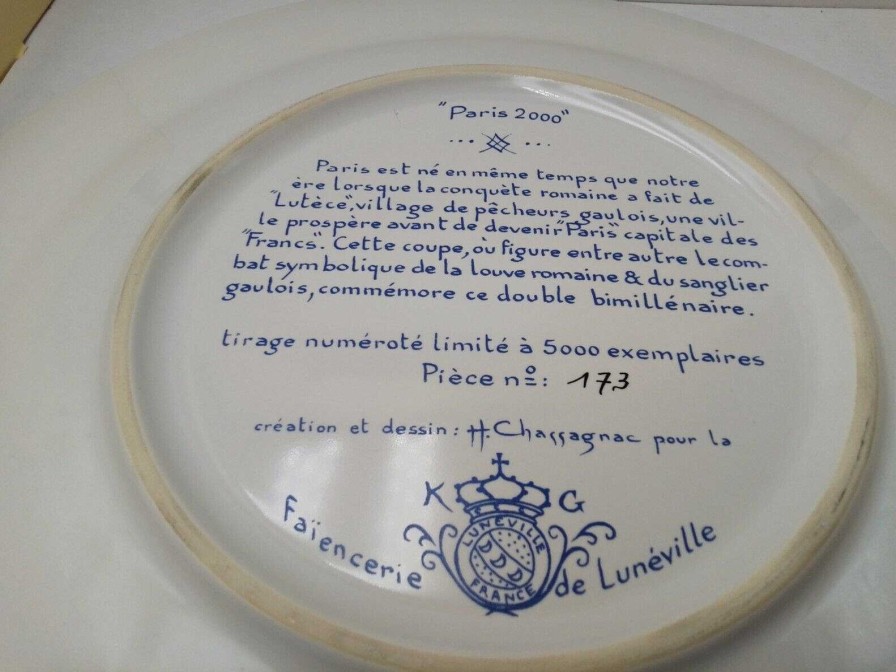 "Paris 2000"
Paris est né en même temps que notre
ère lorsque la conquète romaine a fait de
"Lutèce", village de pêcheurs gaulois, une vil-
le prospère avant de devenir "Paris" capitale des
"Francs". Cette coupe, où figure entre autre le com-
bat symbolique de la louve romaine & du sanglier
gaulois, commémore ce double bimillénaire.
tirage numéroté limité à 5000 exemplaires
Pièce nº: 173
création et dessin: H. Chassagnac pour la
K G
LUNÉVILLE
FRANCE
Faïencerie de Lunéville